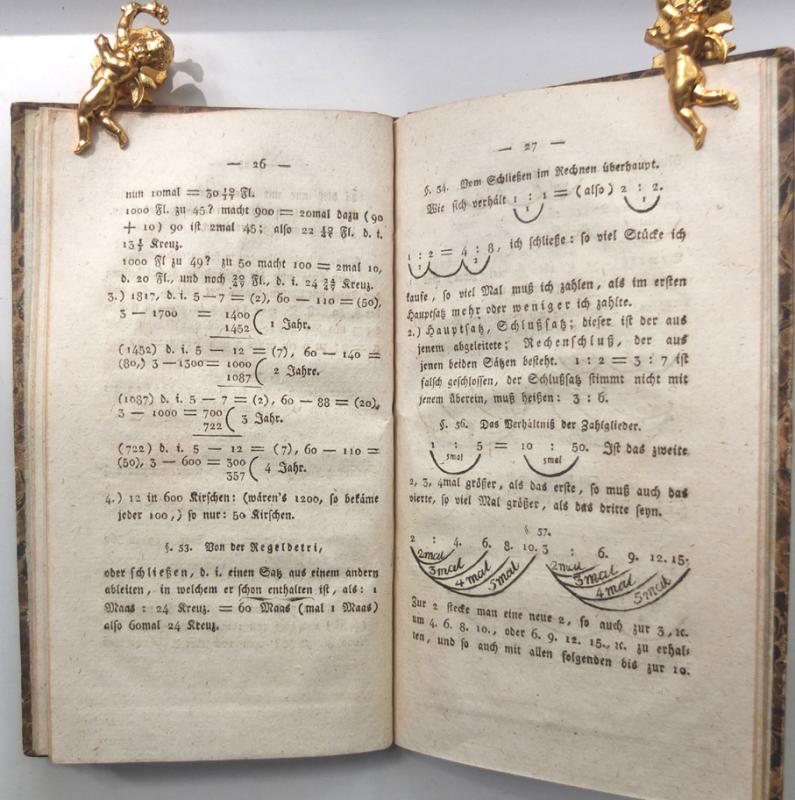 — 26 —
nun 10mal = 30 10/17 Fl.
1000 Fl. zu 45? macht 900 = 20mal dazu (90
+ 10) 90 ist 2mal 45; also 22 10/45 Fl. d. i.
13 1/3 Kreuz.
1000 Fl zu 49? zu 50 macht 100 = 2mal 10,
d. 20 Fl., und noch 20/49 Fl., d. i. 24 24/49 Kreuz.
3.) 1817, d. i. 5 — 7 = (2), 60 — 110 = (50),
3 — 1700 = 1400
1452 ( 1 Jahr.
(1452) d. i. 5 — 12 = (7), 60 — 140 =
(80,) 3 — 1300 = 1000
1087 ( 2 Jahre.
(1087) d. i. 5 — 7 = (2), 60 — 88 = (20),
3 — 1000 = 700
722 ( 3 Jahr.
(722) d. i. 5 — 12 = (7), 60 — 110 =
(50), 3 — 600 = 300
357 ( 4 Jahr.
4.) 12 in 600 Kirschen: (wären's 1200, so bekäme
jeder 100,) so nur: 50 Kirschen.
§. 53. Von der Regeldetri,
oder schließen, d. i. einen Satz aus einem andern
ableiten, in welchem er schon enthalten ist, als: 1
Maas : 24 Kreuz. = 60 Maas (mal 1 Maas)
also 60mal 24 Kreuz.
— 27 —
§. 54. Vom Schließen im Rechnen überhaupt.
Wie sich verhält 1 : 1 = (also) 2 : 2.
1 1
1 : 2 = 4 : 8, ich schließe: so viel Stücke ich
2
kaufe, so viel Mal muß ich zahlen, als im ersten
Hauptsatz mehr oder weniger ich zahlte.
2.) Hauptsatz, Schlußsatz; dieser ist der aus
jenem abgeleitete; Rechenschluß, der aus
jenen beiden Sätzen besteht. 1 : 2 = 3 : 7 ist
falsch geschlossen, der Schlußsatz stimmt nicht mit
jenem überein, muß heißen: 3 : 6.
§. 56. Das Verhältniß der Zahlglieder.
1 : 5 = 10 : 50. Ist das zweite
5mal 5mal
2, 3, 4mal größer, als das erste, so muß auch das
vierte, so viel Mal größer, als das dritte seyn.
§ 57.
2 : 4. 6. 8. 10. 3 : 6. 9. 12. 15.
2mal 2mal
3mal 3mal
4mal 4mal
5mal 5mal
Zur 2 stecke man eine neue 2, so auch zur 3, ꝛc.
um 4. 6. 8. 10., oder 6. 9. 12. 15., ꝛc. zu erhal-
ten, und so auch mit allen folgenden bis zur 10.